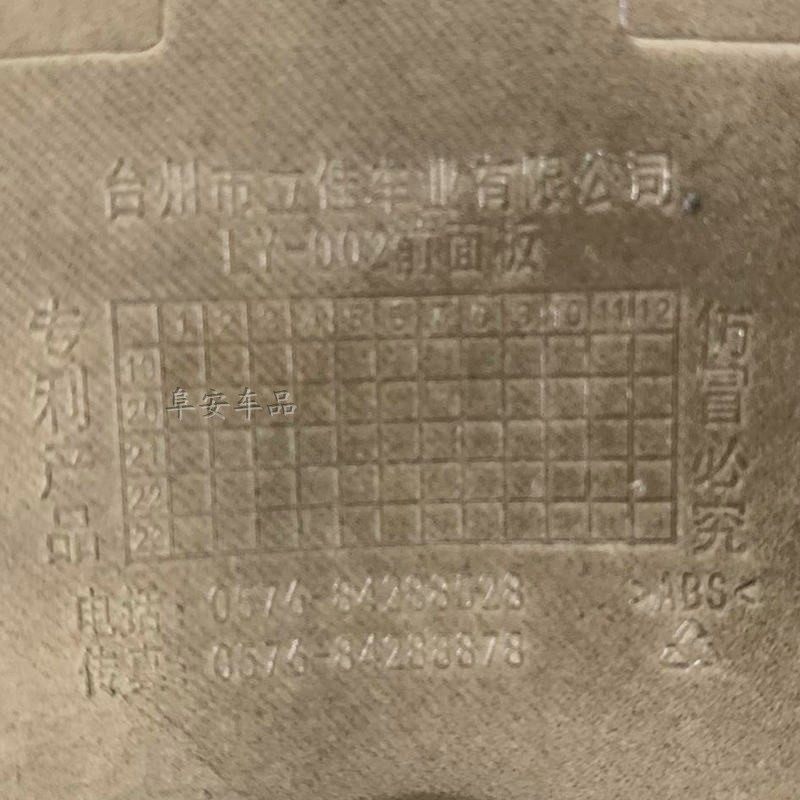 台州市立佳车业有限公司
LY-002前面板
专利产品
1 2 3 4 5 6 7 8 9 10 11 12
19
20
21
22
23
仿冒必究
阜安车品
电话 0574-84288528
传真 0574-84288878
>ABS<